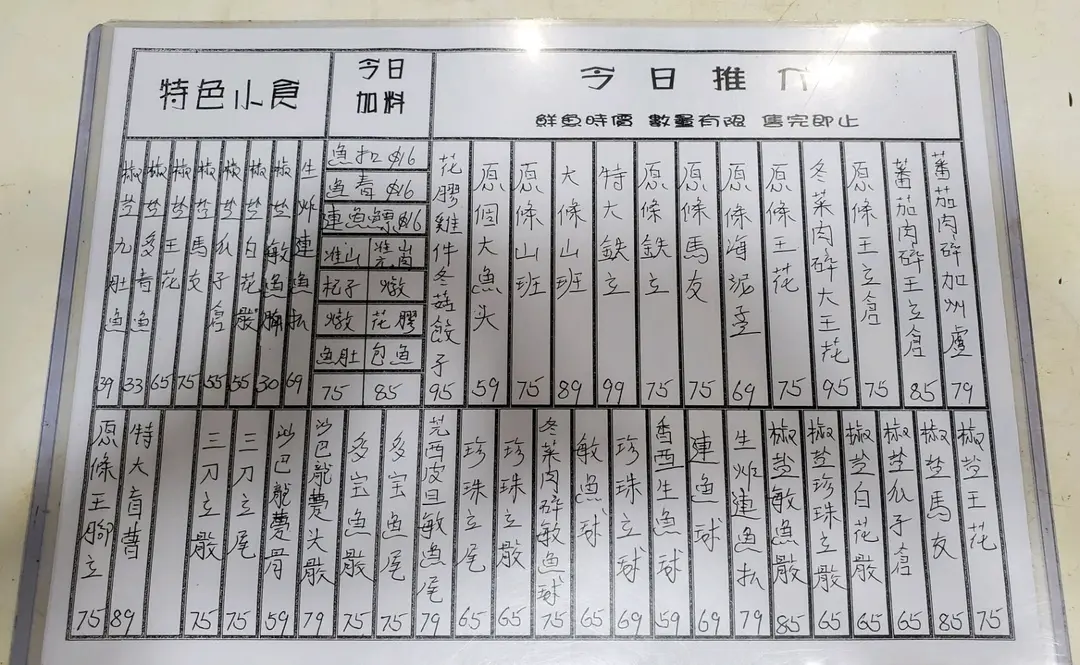 今日推介
鮮魚時價 數量有限 售完即止
蕃茄肉碎加州盧 79
蕃茄肉碎王立倉 85
原條王立倉 75
冬菜肉碎大王花 95
原條王花 75
原條海泥孟 69
原條馬友 75
原條鉄立 75
特大鉄立 99
大條山班 89
原條山班 75
原個大魚头 59
花膠雞件冬菇餃子 95
今日
加料
魚扣 $16
魚春 $16
連魚鰾 $16
淮山 羌崗
杞子 燉
燉 花膠
魚肚 包魚
75 85
特色小食
生炸連魚扒 69
椒盐敏魚腩 30
椒盐白花散 55
椒盐瓜子倉 55
椒盐馬友 75
椒盐王花 65
椒盐多春魚 33
椒盐九肚魚 39
椒盐王花 75
椒盐馬友 85
椒盐瓜子倉 65
椒盐白花散 65
椒盐珍珠立散 65
椒盐敏魚散 85
生炸連魚扒 79
連魚球 69
香西生魚球 59
珍珠立球 69
敏魚球 65
冬菜肉碎敏魚球 75
珍珠立散 65
珍珠立尾 65
芫西皮旦敏魚尾 79
多宝魚尾 75
多宝魚散 75
沙巴龍躉头散 79
沙巴龍躉骨 59
三刀立尾 75
三刀立散 75
特大盲曹 89
原條王腳立 75